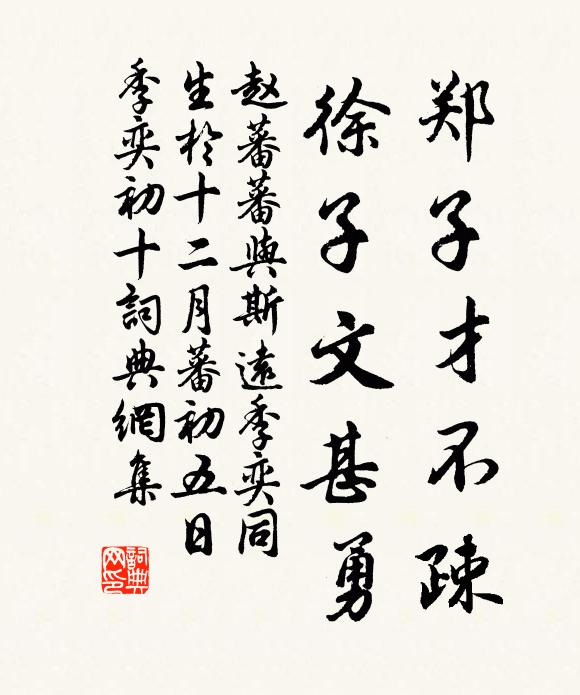 郑子才不疎
徐子文甚勇
赵蕃蕃與斯遠季奕同
生於十二月蕃初五日
季奕初十詞典網集
詞典
网印